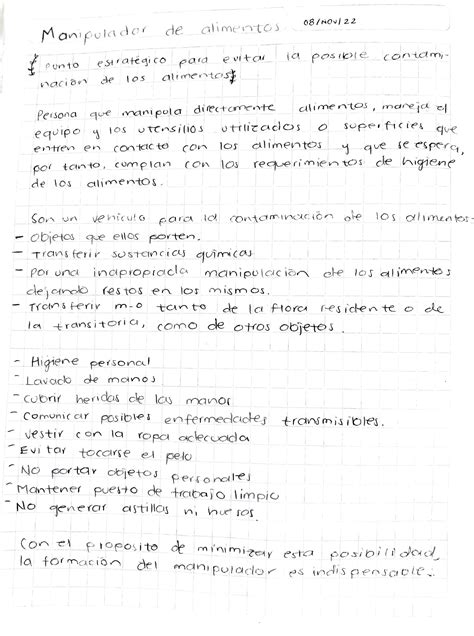 Manipulador de alimentos 08/nov/22
{ Punto estratégico para evitar la posible contami-
nación de los alimentos }
Persona que manipula directamente alimentos, maneja el
equipo y los utensilios utilizados o superficies que
entren en contacto con los alimentos y que se espera,
por tanto, cumplan con los requerimientos de higiene
de los alimentos.
Son un vehículo para la contaminación de los alimentos.
- Objetos que ellos porten.
- Transferir sustancias químicas
- Por una inapropiada manipulación de los alimentos
dejando restos en los mismos.
- Transferir m-o tanto de la flora residente o de
la transitoria, como de otros objetos.
- Higiene personal
- Lavado de manos
- Cubrir heridas de las manos
- Comunicar posibles enfermedades transmisibles.
- Vestir con la ropa adecuada
- Evitar tocarse el pelo
- No portar objetos personales
- Mantener puesto de trabajo limpio
- No generar astillas ni huesos.
Con el proposito de minimizar esta posibilidad,
la formación del manipulador es indispensable.